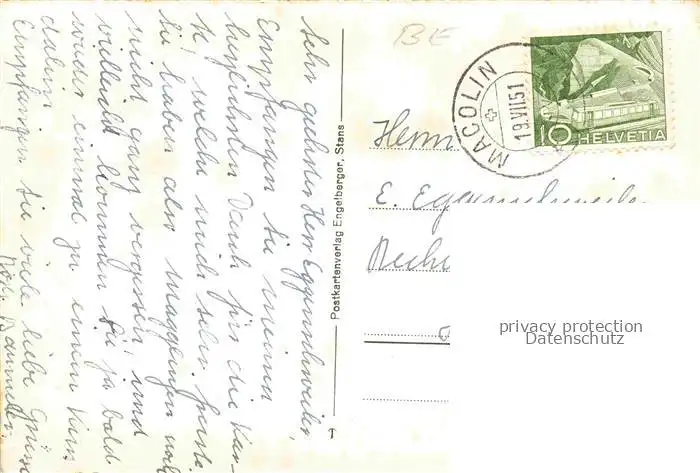 Sehr geehrter Herr Eggenschwiler,
Empfangen Sie meinen
herzlichsten Dank für die Kar-
te, welche mich sehr freute.
Sie haben also Magglingen noch
nicht ganz vergessen, und
vielleicht kommen Sie ja bald
wieder einmal zu einem Kurs
dahin.
Empfangen Sie viele liebe Grüsse
Postkartenverlag Engelberger, Stans
BE
MACOLIN
19.VII.51
10 HELVETIA
Herrn
E. Eggenschwiler
privacy protection
Datenschutz